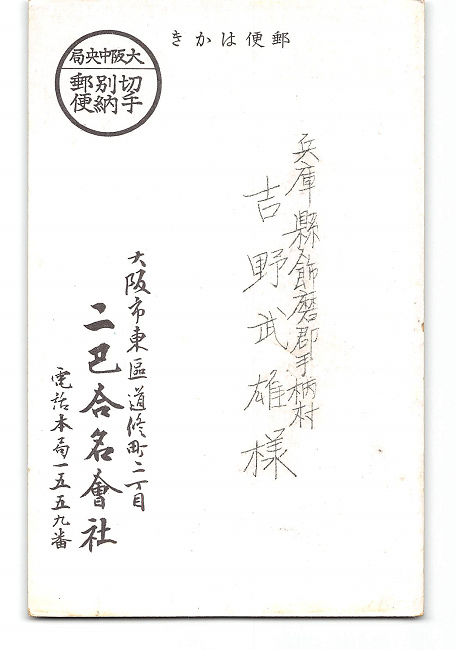 きかはり便郵
局央中阪大
切手
別納
郵便
兵庫縣飾磨郡手柄村
吉野武雄様
大阪市東區道修町二丁目
二巴合名會社
電話本局一五五九番